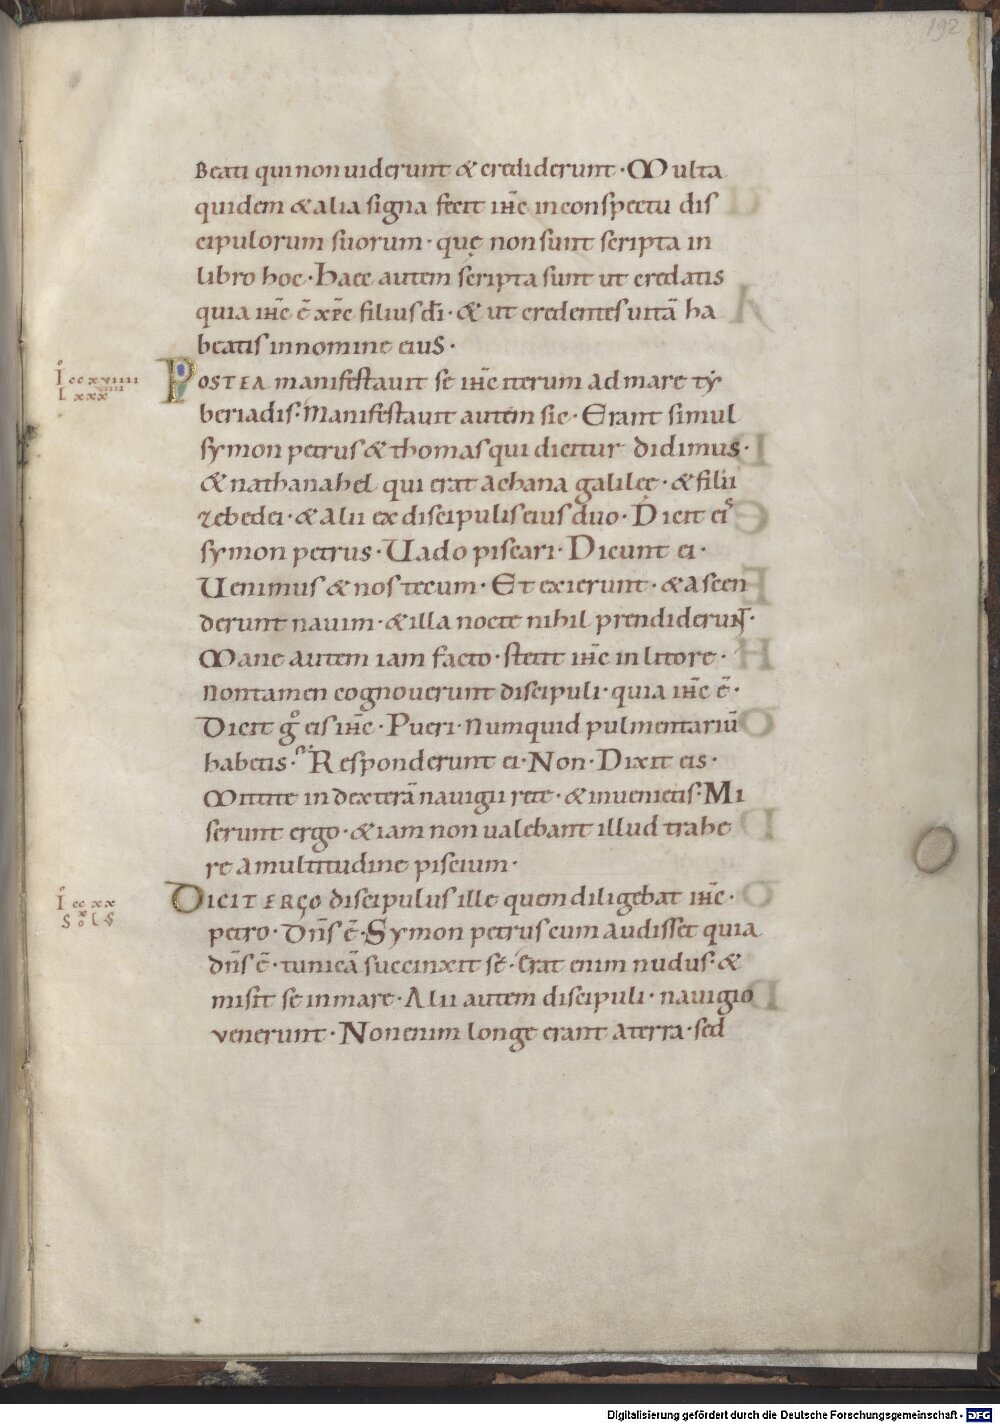 192
Beati qui non uiderunt & crediderunt · Multa
quidem & alia signa fecit ih̄c in conspectu dis
cipulorum suorum · quę non sunt scripta in
libro hoc · Haec autem scripta sunt ut credatis
quia ih̄c ē xp̄c filius dī · & ut credentes uitā ha
beatis in nomine eius ·
Postea manifestauit se ih̄c iterum ad mare ty
beriadis · Manifestauit autem sic · Erant simul
symon petrus & thomas qui dicitur didimus ·
& nathanahel qui erat achana galileę · & filii
zebedei · & alii ex discipulis eius duo · Dicit eis
symon petrus · Uado piscari · Dicunt ei ·
Uenimus & nos tecum · Et exierunt · & ascen
derunt nauim · & illa nocte nihil prendiderunt ·
Mane autem iam facto · stetit ih̄c in litore ·
Non tamen cognouerunt discipuli · quia ih̄c ē ·
Dicit gͦ eis ih̄c · Pueri · Numquid pulmentariū
habetis · Responderunt ei · Non · Dixit eis ·
Mittite in dexterā nauigii rete · & inuenietis · Mi
serunt ergo · & iam non ualebant illud trahe
re a multitudine piscium ·
Dicit ergo discipulus ille quem diligebat ih̄c ·
petro · Dn̄s ē · Symon petrus cum audisset quia
dn̄s ē · tunicā succinxit se · Erat enim nudus · &
misit se in mare · Alii autem discipuli · nauigio
venerunt · Non enim longe erant a terra · sed
I ccxviiii
L xxx
I ccxx
Digitalisierung gefördert durch die Deutsche Forschungsgemeinschaft - DFG